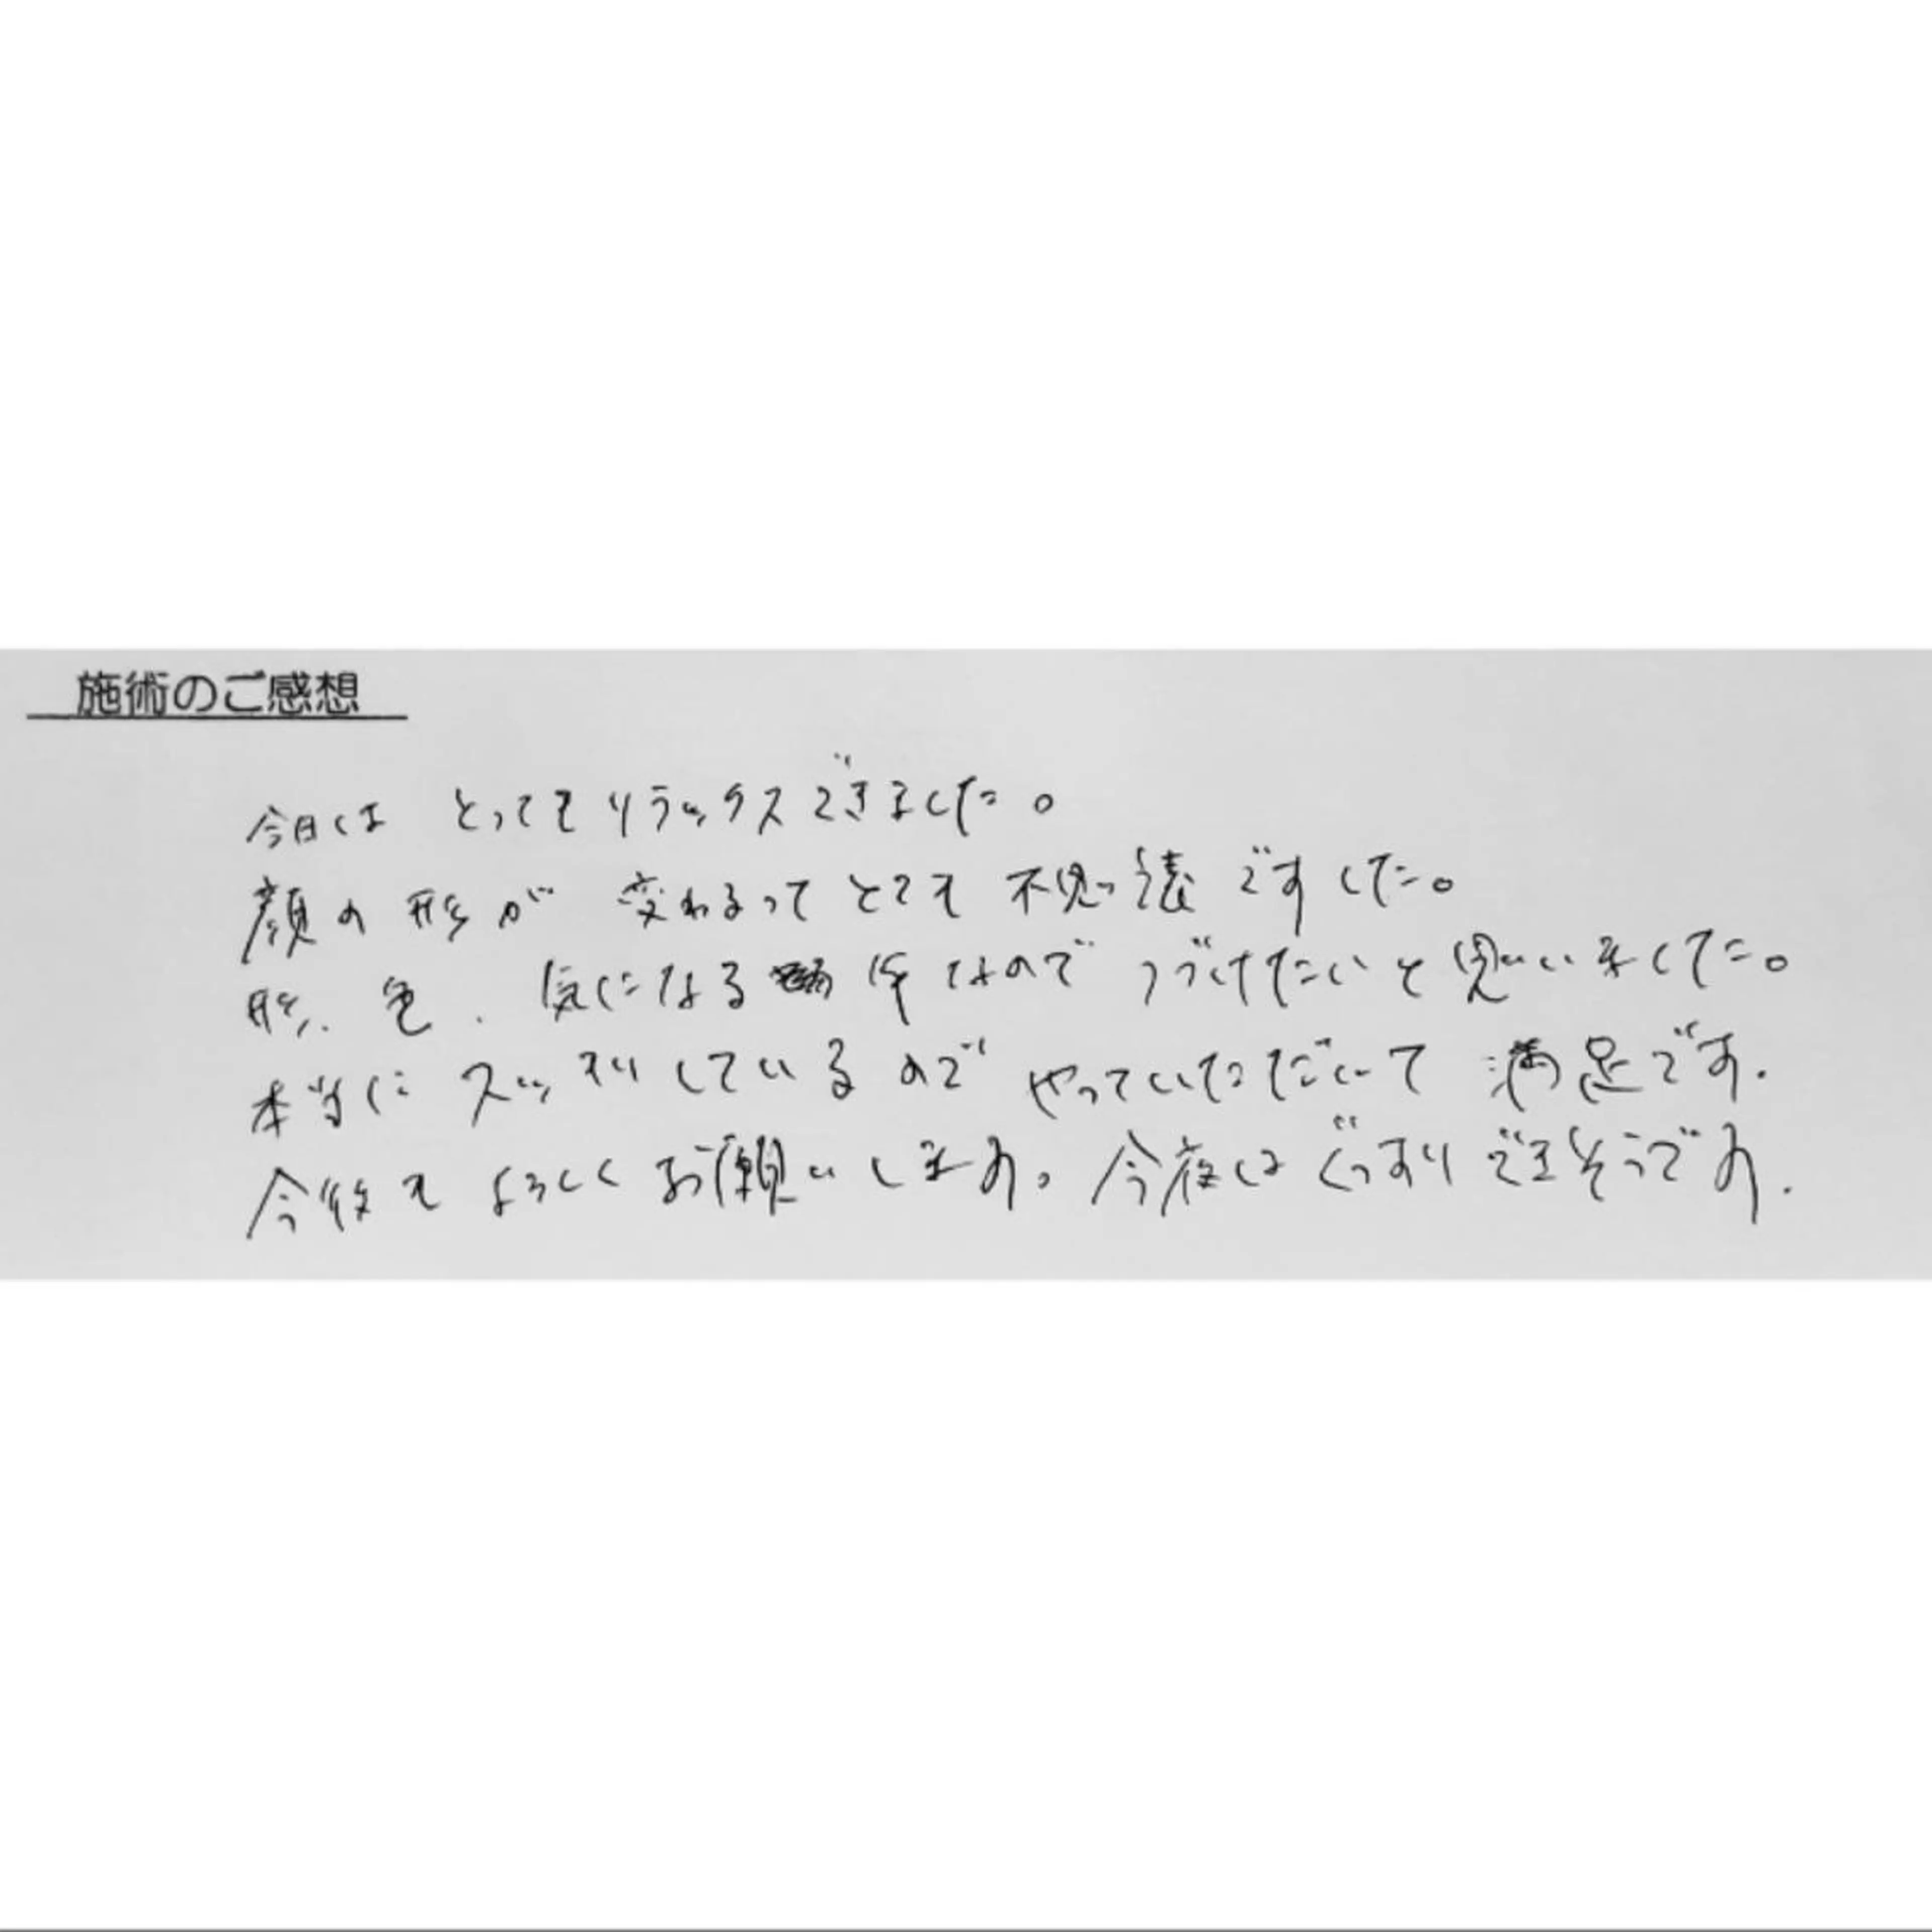 施術のご感想
今日は とってもリラックスできました。
顔の形が 変わるってとても 不思議 ですした。
形、色、気になる 年なので つづけたいと思いました。
本当に スッキリしているので やっていただいて 満足です.
今後も よろしく お願いします。今夜は ぐっすり できそうです.